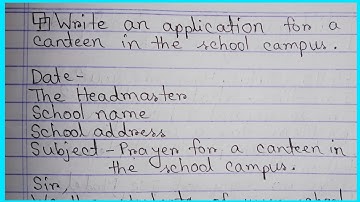 Write an application for a
canteen in the school campus.
Date-
The Headmaster
School name
School address
Subject-Prayer for a canteen in
the school campus.
Sir,